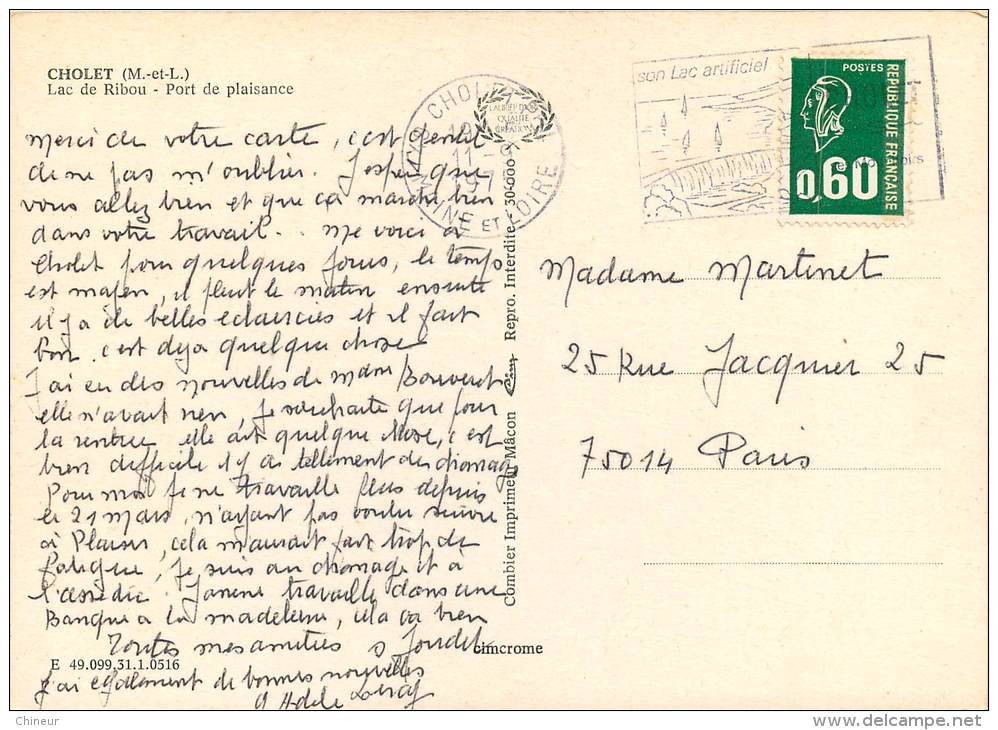 CHOLET (M.-et-L.)
Lac de Ribou - Port de plaisance
Merci de votre carte, c'est gentil
de ne pas m'oublier. J'espère que
vous allez bien et que ça marche bien
dans votre travail... me voici à
Cholet pour quelques jours, le temps
est moyen, il pleut le matin ensuite
il y a de belles eclaircies et il fait
bon, c'est deja quelque chose
J'ai eu des nouvelles de mme Bouveret
elle n'avait rien, je souhaite que pour
la rentrée elle ait quelque chose, c'est
bien difficile il y a tellement de chomage
Pour moi je ne travaille plus depuis
le 21 mars, n'ayant pas voulu suivre
à Plaisir, cela m'aurait fait trop de
fatigue, je suis au chomage et à
l'assedic. Janine travaille dans une
Banque a la madeleine, cela va bien
Toutes mes amitiés
E 49.099.31.1.0516
cimcrome
J'ai également de bonnes nouvelles
d'Adele
Combier Imprimeur Mâcon Cim Repro. Interdite - 30-000
LAURIER D'OR
QUALITÉ
CRÉATION
CHOLET
MAINE ET LOIRE
son Lac artificiel
POSTES
REPUBLIQUE FRANÇAISE
0,60
Madame Martinet
25 Rue Jacquier 25
75014 Paris
Chineur
delcampe.net